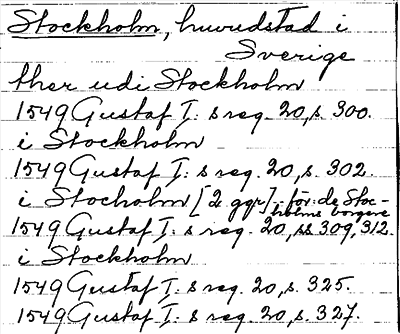 Stockholm, huvudstad i
Sverige
ther udi Stockholm
1549 Gustaf I:s reg. 20, s. 300.
i Stockholm
1549 Gustaf I:s reg. 20, s. 302.
i Stocholm [2 ggr]; för: de Stoc-
holms borgere
1549 Gustaf I:s reg. 20, ss 309, 312.
i Stockholm
1549 Gustaf I:s reg. 20, s. 325.
1549 Gustaf I:s reg. 20, s. 327.